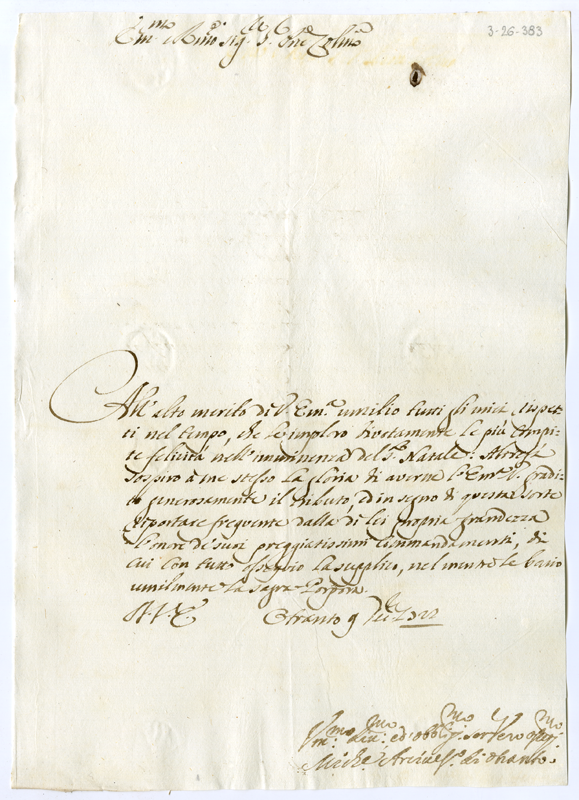 Em.mo e Rmo sig.r P.ne Colmo
3-26-383
All' alto merito di V. Em.a umilio tutti gli miei rispet-
ti nel tempo, che le imploro divotamente le più compi-
te felicità nell' imminenza del S.o Natale:
sospiro à me stesso la gloria di averne l' Em.a V. gradi-
to generosamente il tributo, ed in segno di questa sorte
riportare frequente dalla di lei propria grandezza
l' onore de' suoi preggiatissimi commandamenti, di
cui con tutto ossequio la supplico, nel mentre le bacio
umilmente la Sagra Porpora.
Otranto 9
Um.mo ed obblig.mo ser.
Mich. Arcives.o di Otranto.